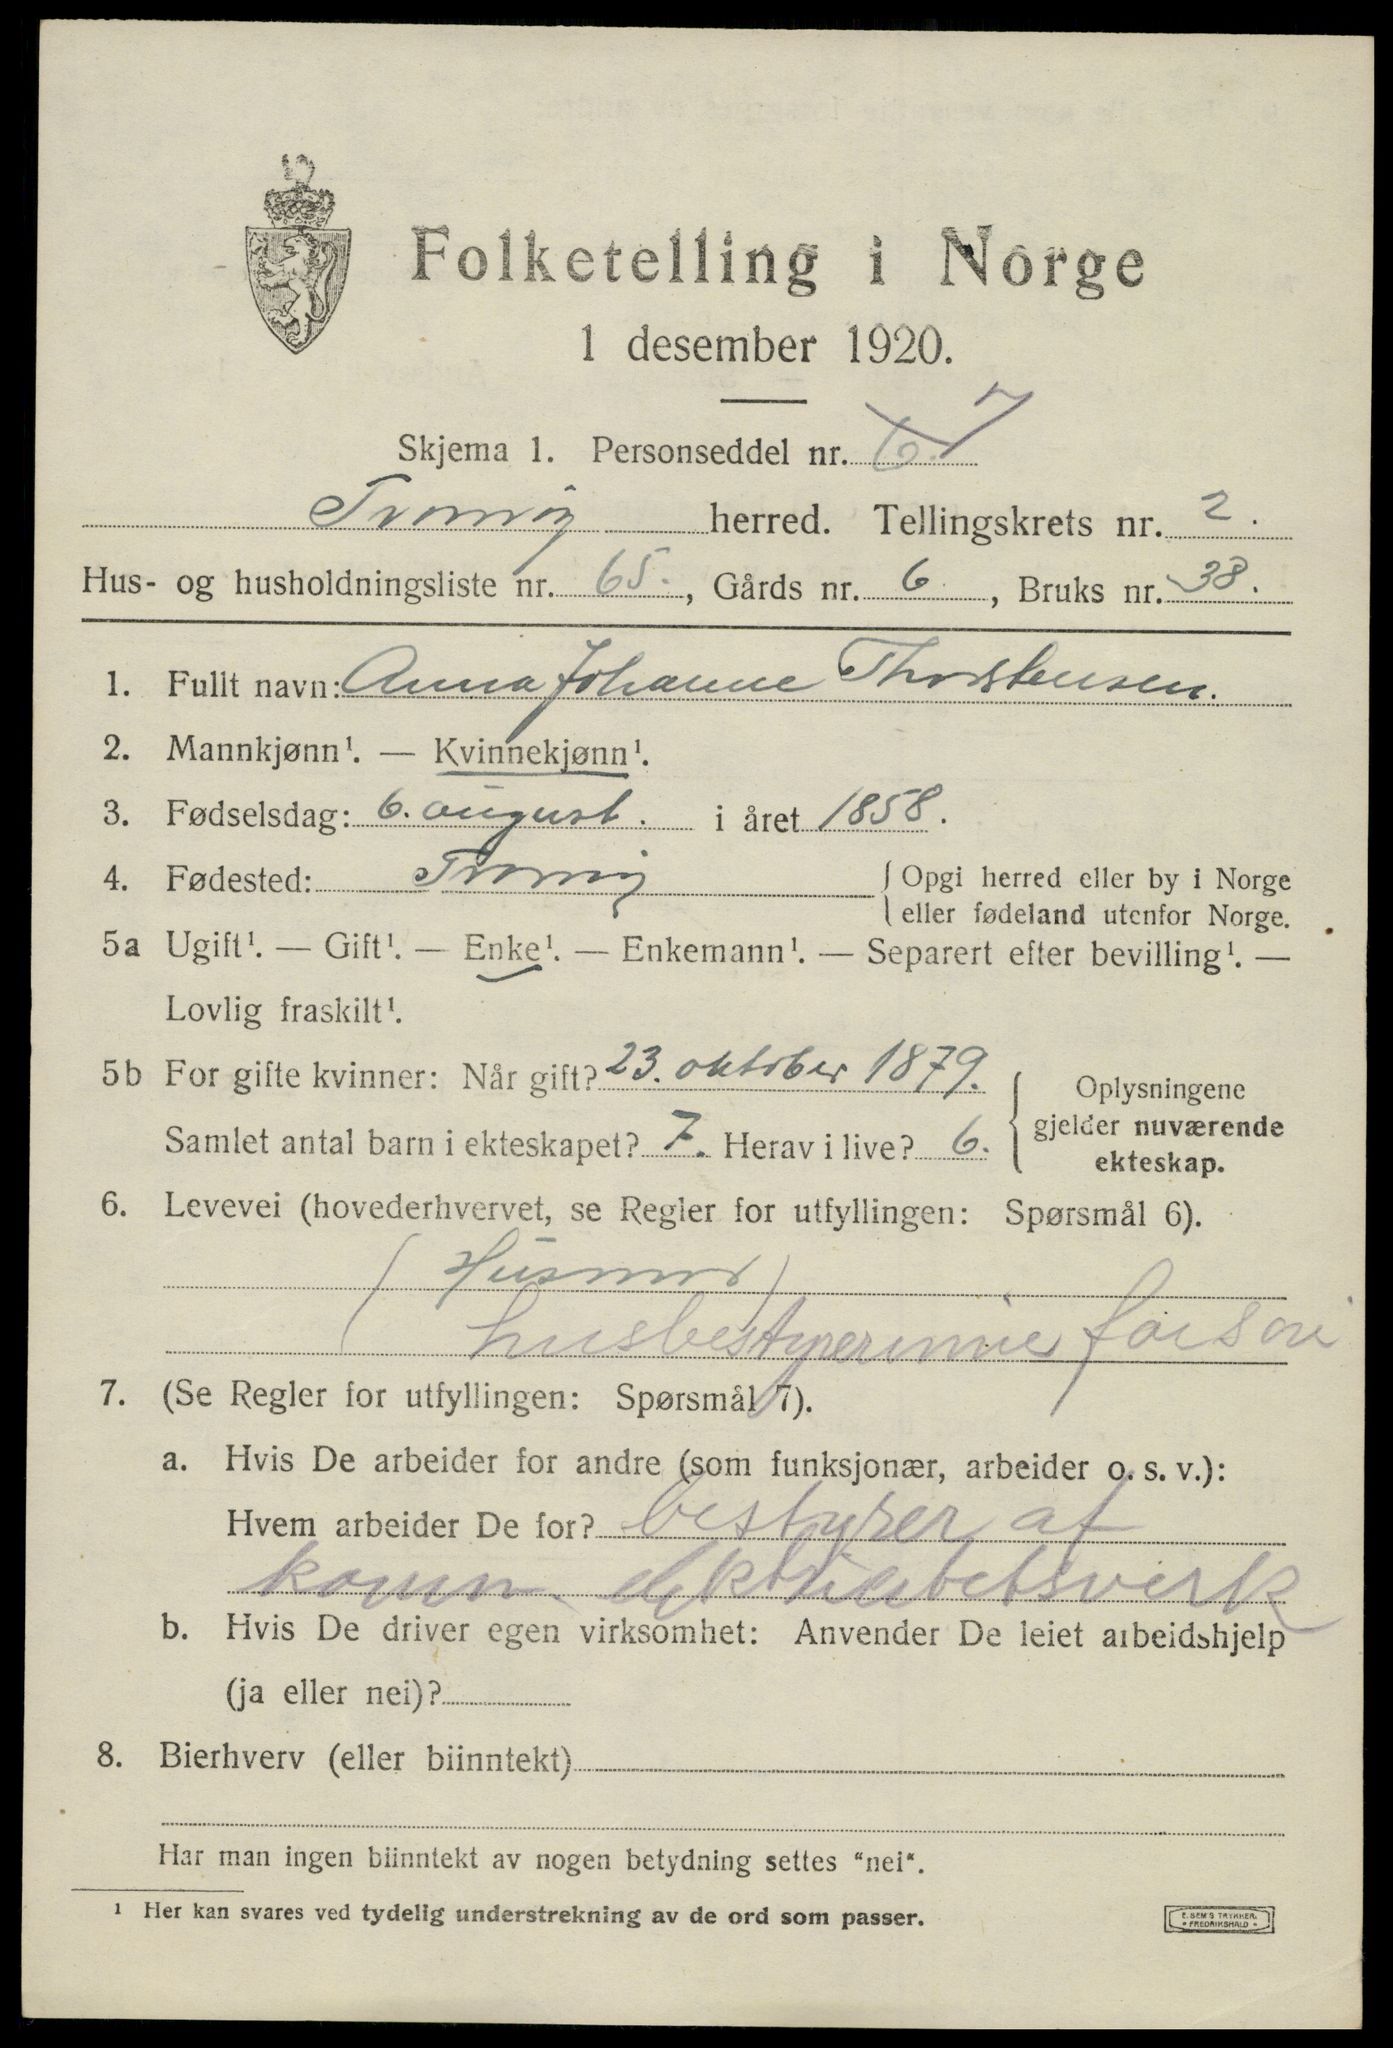 Folketelling i Norge
1 desember 1920.
Skjema 1. Personseddel nr. 6. 7
Tromøy herred. Tellingskrets nr. 2.
Hus- og husholdningsliste nr. 65., Gårds nr. 6, Bruks nr. 38.
1. Fullt navn: Anna Johanne Thorstensen.
2. Mannkjønn¹. — Kvinnekjønn¹.
3. Fødselsdag: 6. august. i året 1858.
4. Fødested: Tromøy { Opgi herred eller by i Norge
eller fødeland utenfor Norge.
5a Ugift¹. — Gift¹. — Enke¹. — Enkemann¹. — Separert efter bevilling¹. —
Lovlig fraskilt¹.
5b For gifte kvinner: Når gift? 23. oktober 1879.
Samlet antal barn i ekteskapet? 7. Herav i live? 6.
Oplysningene
gjelder nuværende
ekteskap.
6. Levevei (hovederhvervet, se Regler for utfyllingen: Spørsmål 6).
(Husmor)
husbestyrerinne for søn
7. (Se Regler for utfyllingen: Spørsmål 7).
a. Hvis De arbeider for andre (som funksjonær, arbeider o. s. v.):
Hvem arbeider De for? bestyrer af
komm. elektricitetsverk
b. Hvis De driver egen virksomhet: Anvender De leiet arbeidshjelp
(ja eller nei)?
8. Bierhverv (eller biinntekt)
Har man ingen biinntekt av nogen betydning settes "nei".
¹ Her kan svares ved tydelig understrekning av de ord som passer.
E. SEM'S TRYKKERI
• FREDRIKSHALD •